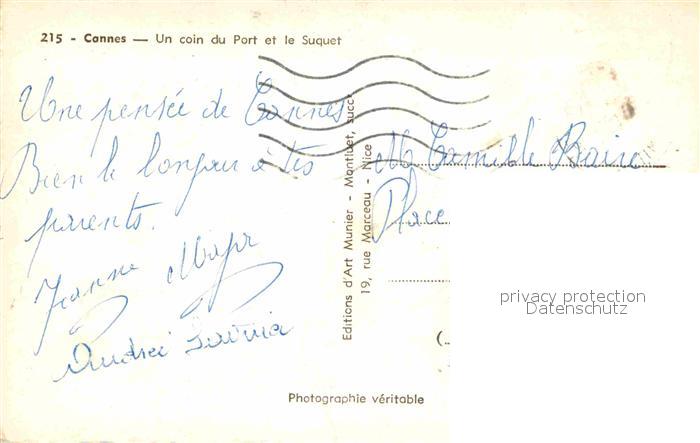 215 - Cannes — Un coin du Port et le Suquet
Une pensée de Cannes
Bien le bonjour à tes
parents.
Jeanne
Andrée
Editions d'Art Munier - Montluet, succ
19, rue Marceau - Nice
Camille
Place
privacy protection
Datenschutz
Photographie véritable